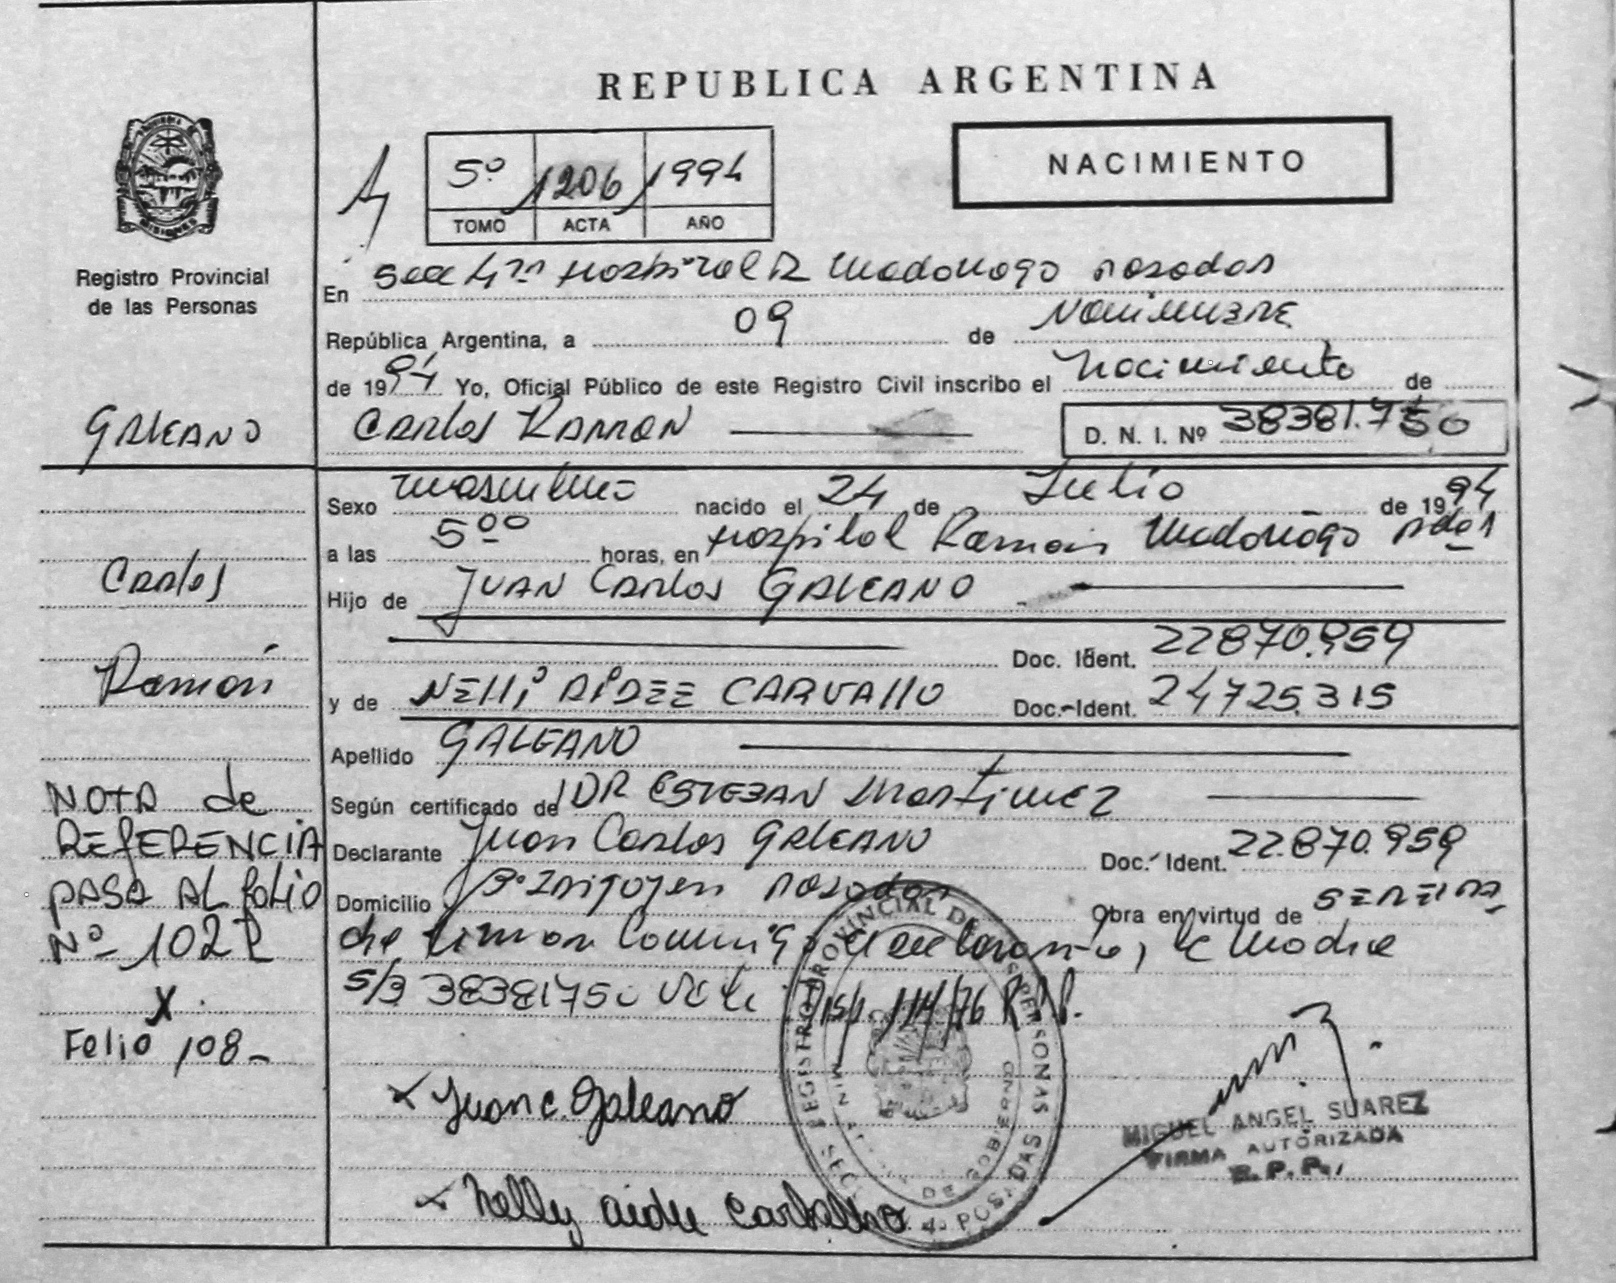 REPUBLICA ARGENTINA
NACIMIENTO
5º 1206 1994
TOMO ACTA AÑO
Registro Provincial
de las Personas
En Secc 4ta Hospital R Madariaga Posadas
República Argentina, a 09 de Noviembre
de 1994 Yo, Oficial Público de este Registro Civil inscribo el Nacimiento de
GALEANO
Carlos Ramon
D. N. I. Nº 38381.750
Sexo masculino nacido el 24 de Julio de 1994
a las 5⁰⁰ horas, en Hospital Ramon Madariaga Pdas
Carlos
Hijo de Juan Carlos GALEANO
Doc. Ident. 22870.959
Ramón
y de NElli AiDEE CARVAllO Doc. Ident. 24725.315
Apellido GALEANO
NOTA de
REfERENCIA
PASA AL folio
Nº 102
X.
Folio 108-
Según certificado de DR ESTEBAN Martinez
Declarante Juan Carlos GALEANO Doc. Ident. 22.870.959
Domicilio Posadas Obra en virtud de
la Madre
S/B 38381750
114/76 R.P.P.
x Juan C. Galeano
x Nelly aidee Carballo
REGISTRO PROVINCIAL DE LAS PERSONAS
DE GOBIERNO
SECC. 4a POSADAS
MIGUEL ANGEL SUAREZ
FIRMA AUTORIZADA
R. P. P.